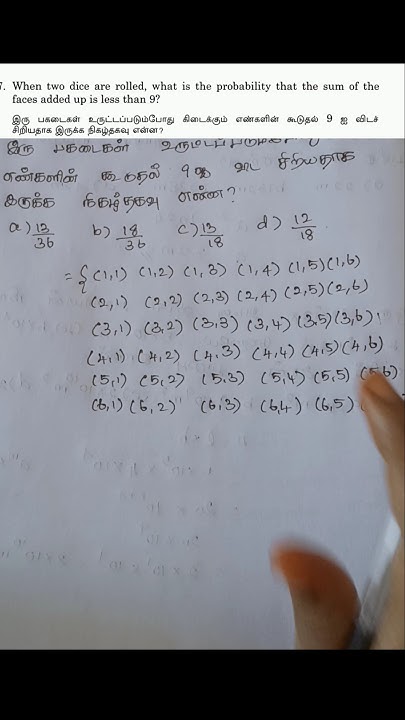 7. When two dice are rolled, what is the probability that the sum of the
faces added up is less than 9?
இரு பகடைகள் உருட்டப்படும்போது கிடைக்கும் எண்களின் கூடுதல் 9 ஐ விடச்
சிறியதாக இருக்க நிகழ்தகவு என்ன?
இரு பகடைகள்
எண்களின் கூடுதல் 9 ஐ விட சிறியதாக
இருக்க நிகழ்தகவு என்ன?
a) 13/36 b) 18/36 c) 13/18 d) 12/18
= { (1,1) (1,2) (1,3) (1,4) (1,5) (1,6)
(2,1) (2,2) (2,3) (2,4) (2,5) (2,6)
(3,1) (3,2) (3,3) (3,4) (3,5) (3,6)
(4,1) (4,2) (4,3) (4,4) (4,5) (4,6)
(5,1) (5,2) (5,3) (5,4) (5,5) (5,6)
(6,1) (6,2) (6,3) (6,4) (6,5)